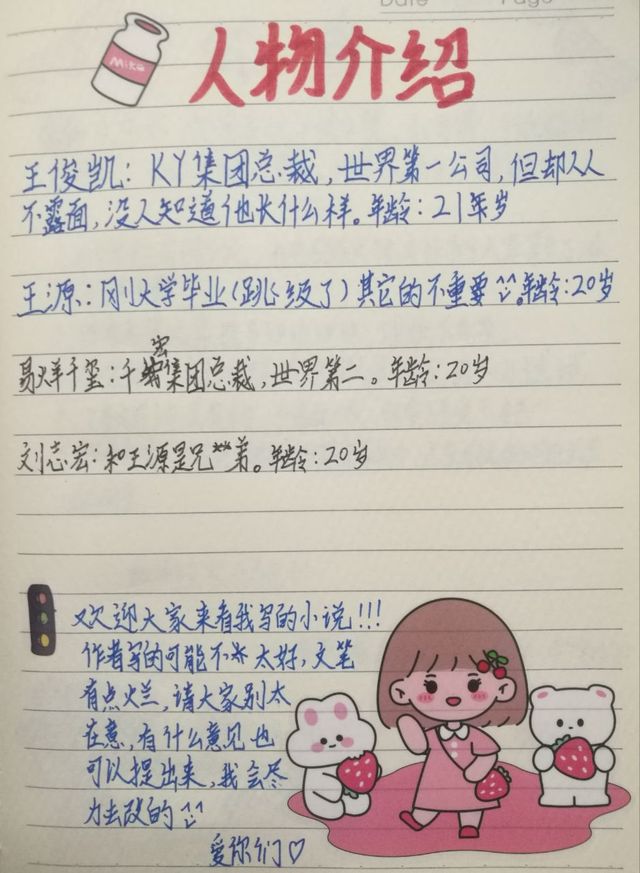 Date
Page
Milk
人物介绍
王俊凯：KY集团总裁，世界第一公司，但却从
不露面，没人知道他长什么样。年龄：21年岁
王源：刚大学毕业（跳级了）其它的不重要^^。年龄：20岁
易烊千玺：千玺集团总裁，世界第二。年龄：20岁
刘志宏：和王源是兄**弟。年龄：20岁
欢迎大家来看我写的小说！！！
作者写的可能不太好，文笔
有点火兰，请大家别太
在意，有什么意见也
可以提出来，我会尽
力去改的^^
爱你们♡